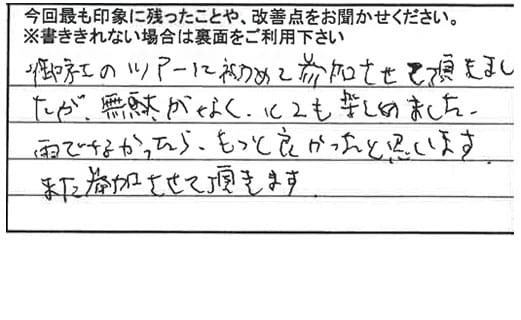 今回最も印象に残ったことや、改善点をお聞かせください。
※書ききれない場合は裏面をご利用下さい
御社のツアーに初めて参加させて頂きまし
たが、無駄がなく、とても楽しめました。
雨でなかったら、もっと良かったと思います。
また参加させて頂きます